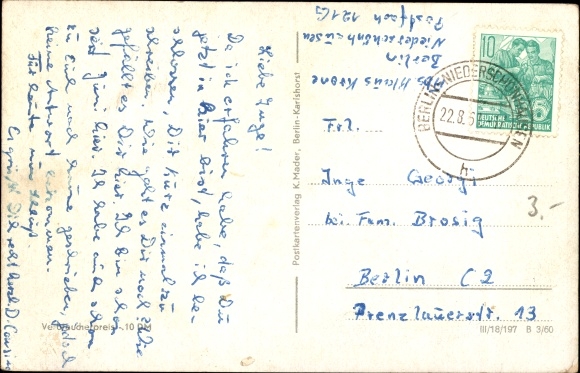 Liebe Inge!
Da ich erfahren habe, daß Du
jetzt in hier bist, habe ich be-
schlossen, Dir kurz einmal zu
schreiben. Wie geht es Dir und wie
gefällt es Dir hier. Ich bin schon
seit Juni hier. Ich habe auch schon
zu Euch nach Hause geschrieben, jedoch
keine Antwort bekommen.
Für heute nun
Es grüßt Dich recht herzl. D. Cousin
Verbraucherpreis -.10 DM
Postkartenverlag K. Mader, Berlin-Karlshorst
Abs. Klaus Krone
Berlin
Niederschönhausen
Postfach 121G
10
DEUTSCHE
DEMOKRATISCHE REPUBLIK
BERLIN-NIEDERSCHÖNHAUSEN
22.8.6
h
Frl.
Inge Georgi
bei Fam. Brosig
3.-
Berlin C2
Prenzlauerstr. 13
III/18/197 B 3/60